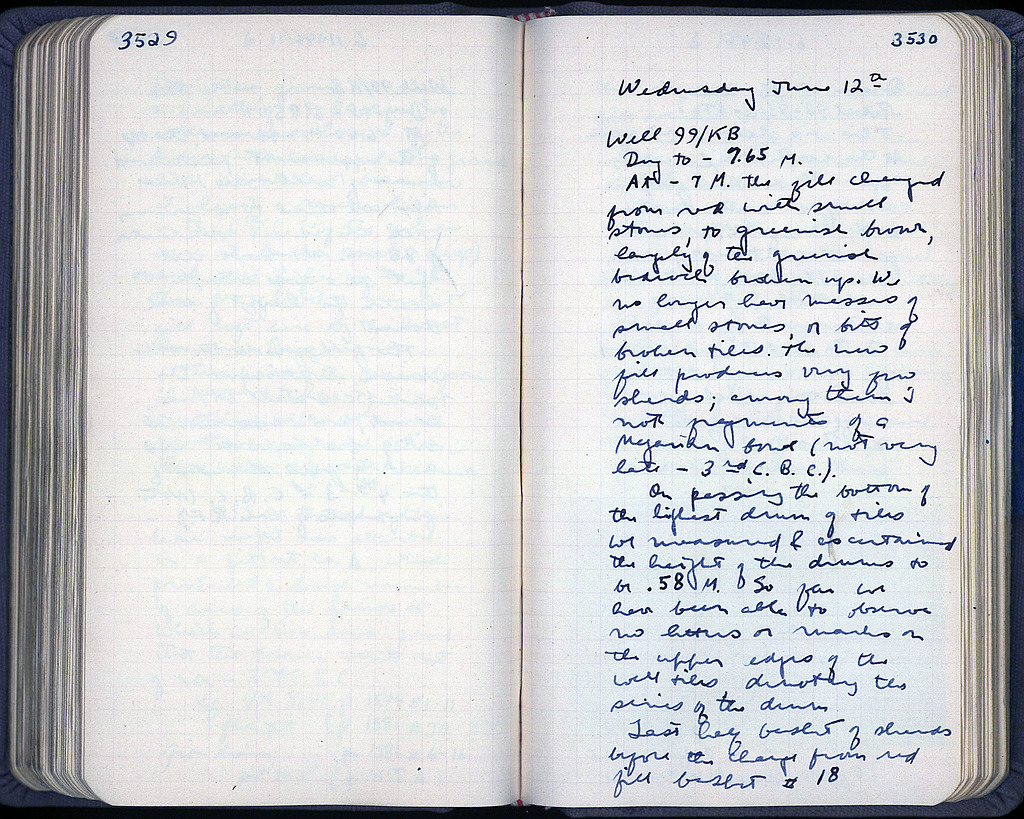 3529
3530
Wednesday June 12th
Well 99/KB
Dug to - 9.65 M.
At - 7 M. the fill changed
from red with small
stones, to greenish brown,
largely of the greenish
bedrock broken up. We
no longer have masses of
small stones, or bits of
broken tiles. The new
fill produces very few
sherds; among them I
note fragments of a
Megarian bowl (not very
late - 3rd C. B. C.).
On passing the bottom of
the highest drum of tiles
we measured & ascertained
the height of the drums to
be .58 M. So far we
have been able to observe
no letters or marks on
the upper edges of the
well tiles, denoting the
series of the drum.
Last half basket of sherds
before the change from red
fill basket # 18